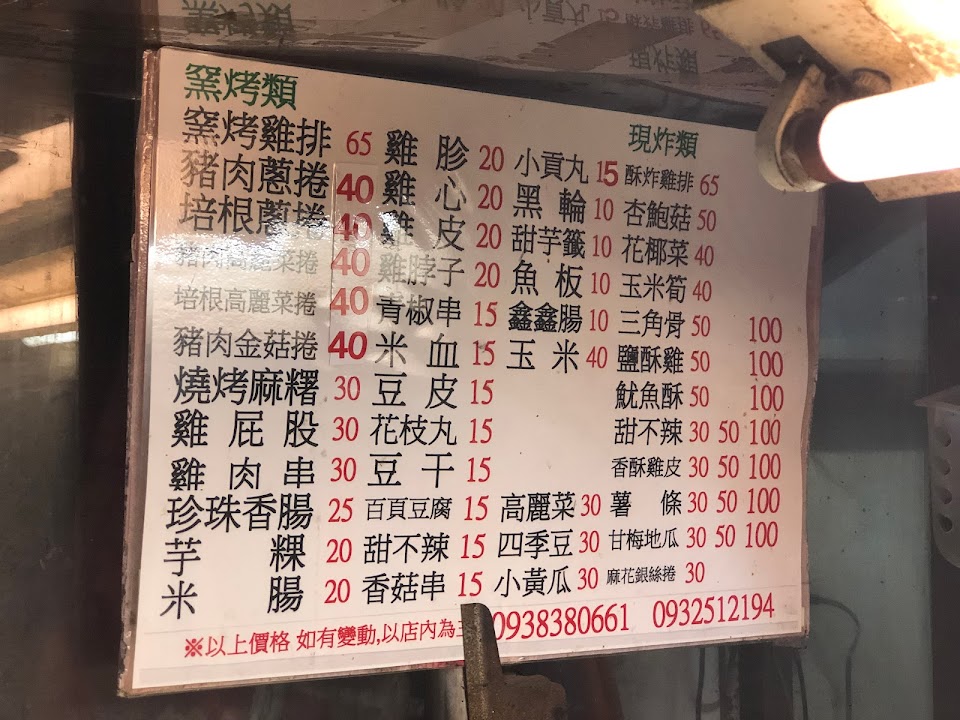 窯烤類
窯烤雞排 65
豬肉蔥捲 40
培根蔥捲 40
豬肉高麗菜捲 40
培根高麗菜捲 40
豬肉金菇捲 40
燒烤麻糬 30
雞屁股 30
雞肉串 30
珍珠香腸 25
芋粿 20
米腸 20
雞胗 20
雞心 20
雞皮 20
雞脖子 20
青椒串 15
米血 15
豆皮 15
花枝丸 15
豆干 15
百頁豆腐 15
甜不辣 15
香菇串 15
小貢丸 15
黑輪 10
甜芋籤 10
魚板 10
鑫鑫腸 10
玉米 40
高麗菜 30
四季豆 30
小黃瓜 30
現炸類
酥炸雞排 65
杏鮑菇 50
花椰菜 40
玉米筍 40
三角骨 50 100
鹽酥雞 50 100
魷魚酥 50 100
甜不辣 30 50 100
香酥雞皮 30 50 100
薯條 30 50 100
甘梅地瓜 30 50 100
麻花銀絲捲 30
※以上價格 如有變動,以店內為主
0938380661 0932512194